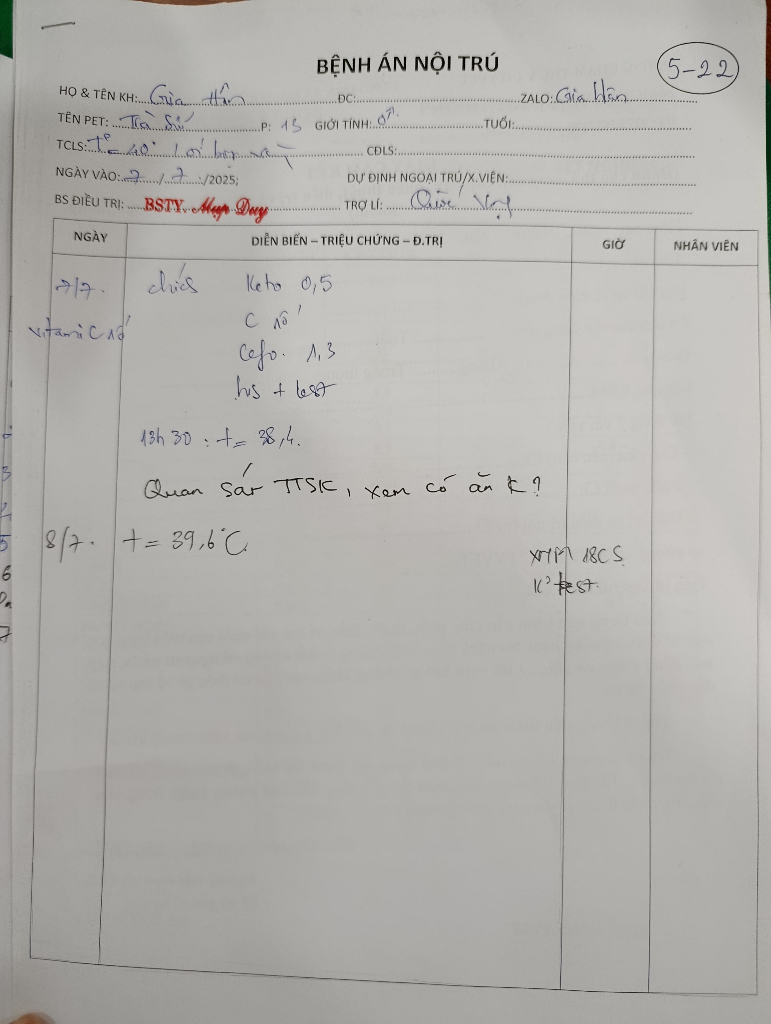 BỆNH ÁN NỘI TRÚ
5-22
HỌ & TÊN KH: Gia Hân ĐC: ZALO: Gia Hân
TÊN PET: Trà Sữ P: 13 GIỚI TÍNH: ♂ TUỔI:
TCLS: T° = 40° CĐLS:
NGÀY VÀO: 7 / 7 /2025; DỰ ĐỊNH NGOẠI TRÚ/X.VIỆN:
BS ĐIỀU TRỊ: BSTY. Mup Duy TRỢ LÍ: Quốc
NGÀY DIỄN BIẾN – TRIỆU CHỨNG – Đ.TRỊ GIỜ NHÂN VIÊN
7/7. chích Keto 0,5
vitamin C 1ố C 1ố
Cefo. 1,3
hs + test
13h 30 : t = 38,4.
Quan sát TTSK, xem có ăn k?
8/7. t = 39,6°C
XNM 18CS
K° test.
2
5
6
7